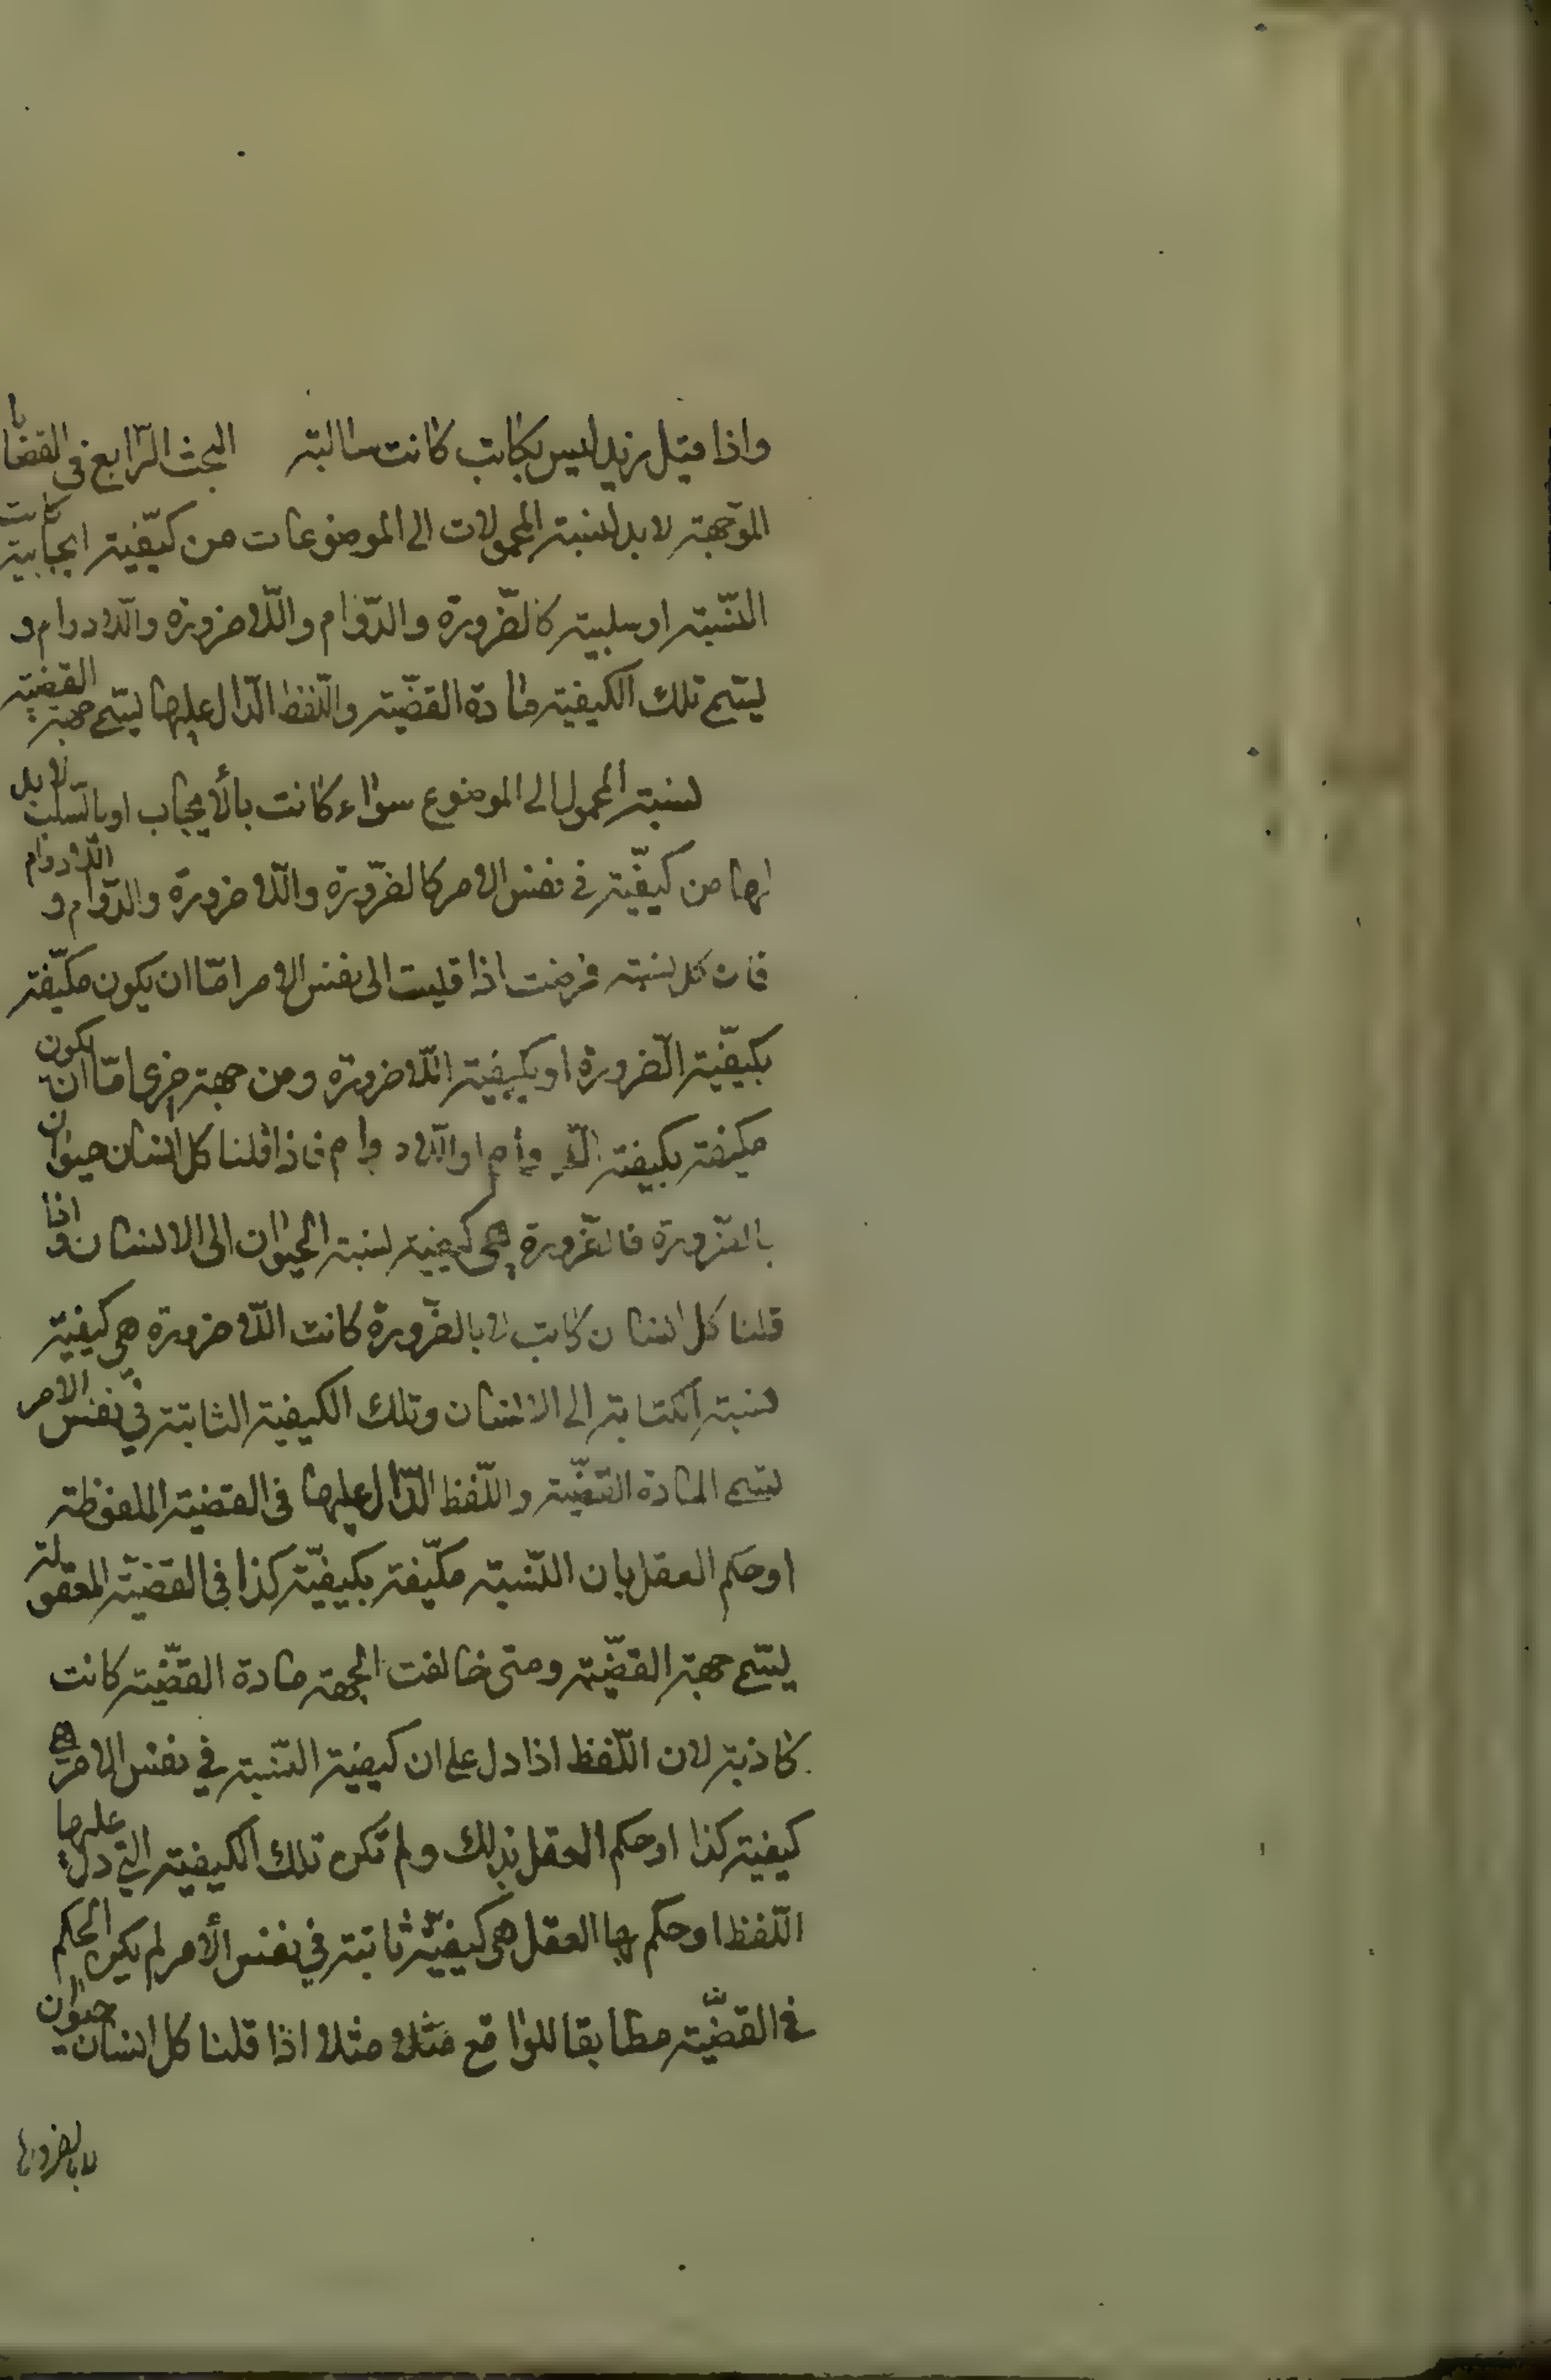 واذا قيل زيد ليس بكاتب كانت سالبة البحث الرّابع في القضايا
الموجهة لا بد لنسبة المحمولات الى الموضوعات من كيفيّة ايجابية كانت
النّسبة او سلبية كالضّرورة والدّوام واللّاضرورة واللّادوام و
ليسّم تلك الكيفية مادة القضيّة واللّفظ الدّال عليها ليسّم جهة القضية
لنسبة المحمول الى الموضوع سواء كانت بالأيجاب او بالسّلب لا بد
لها من كيفيّة في نفس الامر كالضّرورة واللّاضرورة والدّوام و اللّادوام
فان كل نسبة فرضت اذا قيست الى نفس الامر امّا ان يكون مكيّفة
بكيفيّة الضّرورة او بكيفية اللّاضرورة ومن جهة اخرى امّا ان يكون
مكيفة بكيفية الدّوام او اللّادوام فاذا قلنا كل انسان حيوان
بالضّرورة فالضّرورة هى كيفية نسبة الحيوان الى الانسان واذا
قلنا كل انسان كاتب لا بالضّرورة كانت اللّاضرورة هى كيفية
نسبة الكتابة الى الانسان وتلك الكيفية الثابتة في نفس الامر
ليسّم المادة القضيّة واللّفظ الدّال عليها فى القضية الملفوظة
او حكم العقل بان النّسبة مكيّفة بكيفيّة كذا فى القضيّة المعقولة
ليسّم جهة القضيّة ومتى خالفت الجهة مادة القضّية كانت
كاذبة لان اللّفظ اذا دل على ان كيفية النّسبة في نفس الامر هى
كيفية كذا او حكم العقل بذلك ولم تكن تلك الكيفية التي دل عليها
اللّفظ او حكم بها العقل هى كيفيّة ثابتة في نفس الأمر لم يكن الحكم
في القضيّة مطابقا للواقع مثلا مثلا اذا قلنا كل انسان حيوان
لا بالضرورة